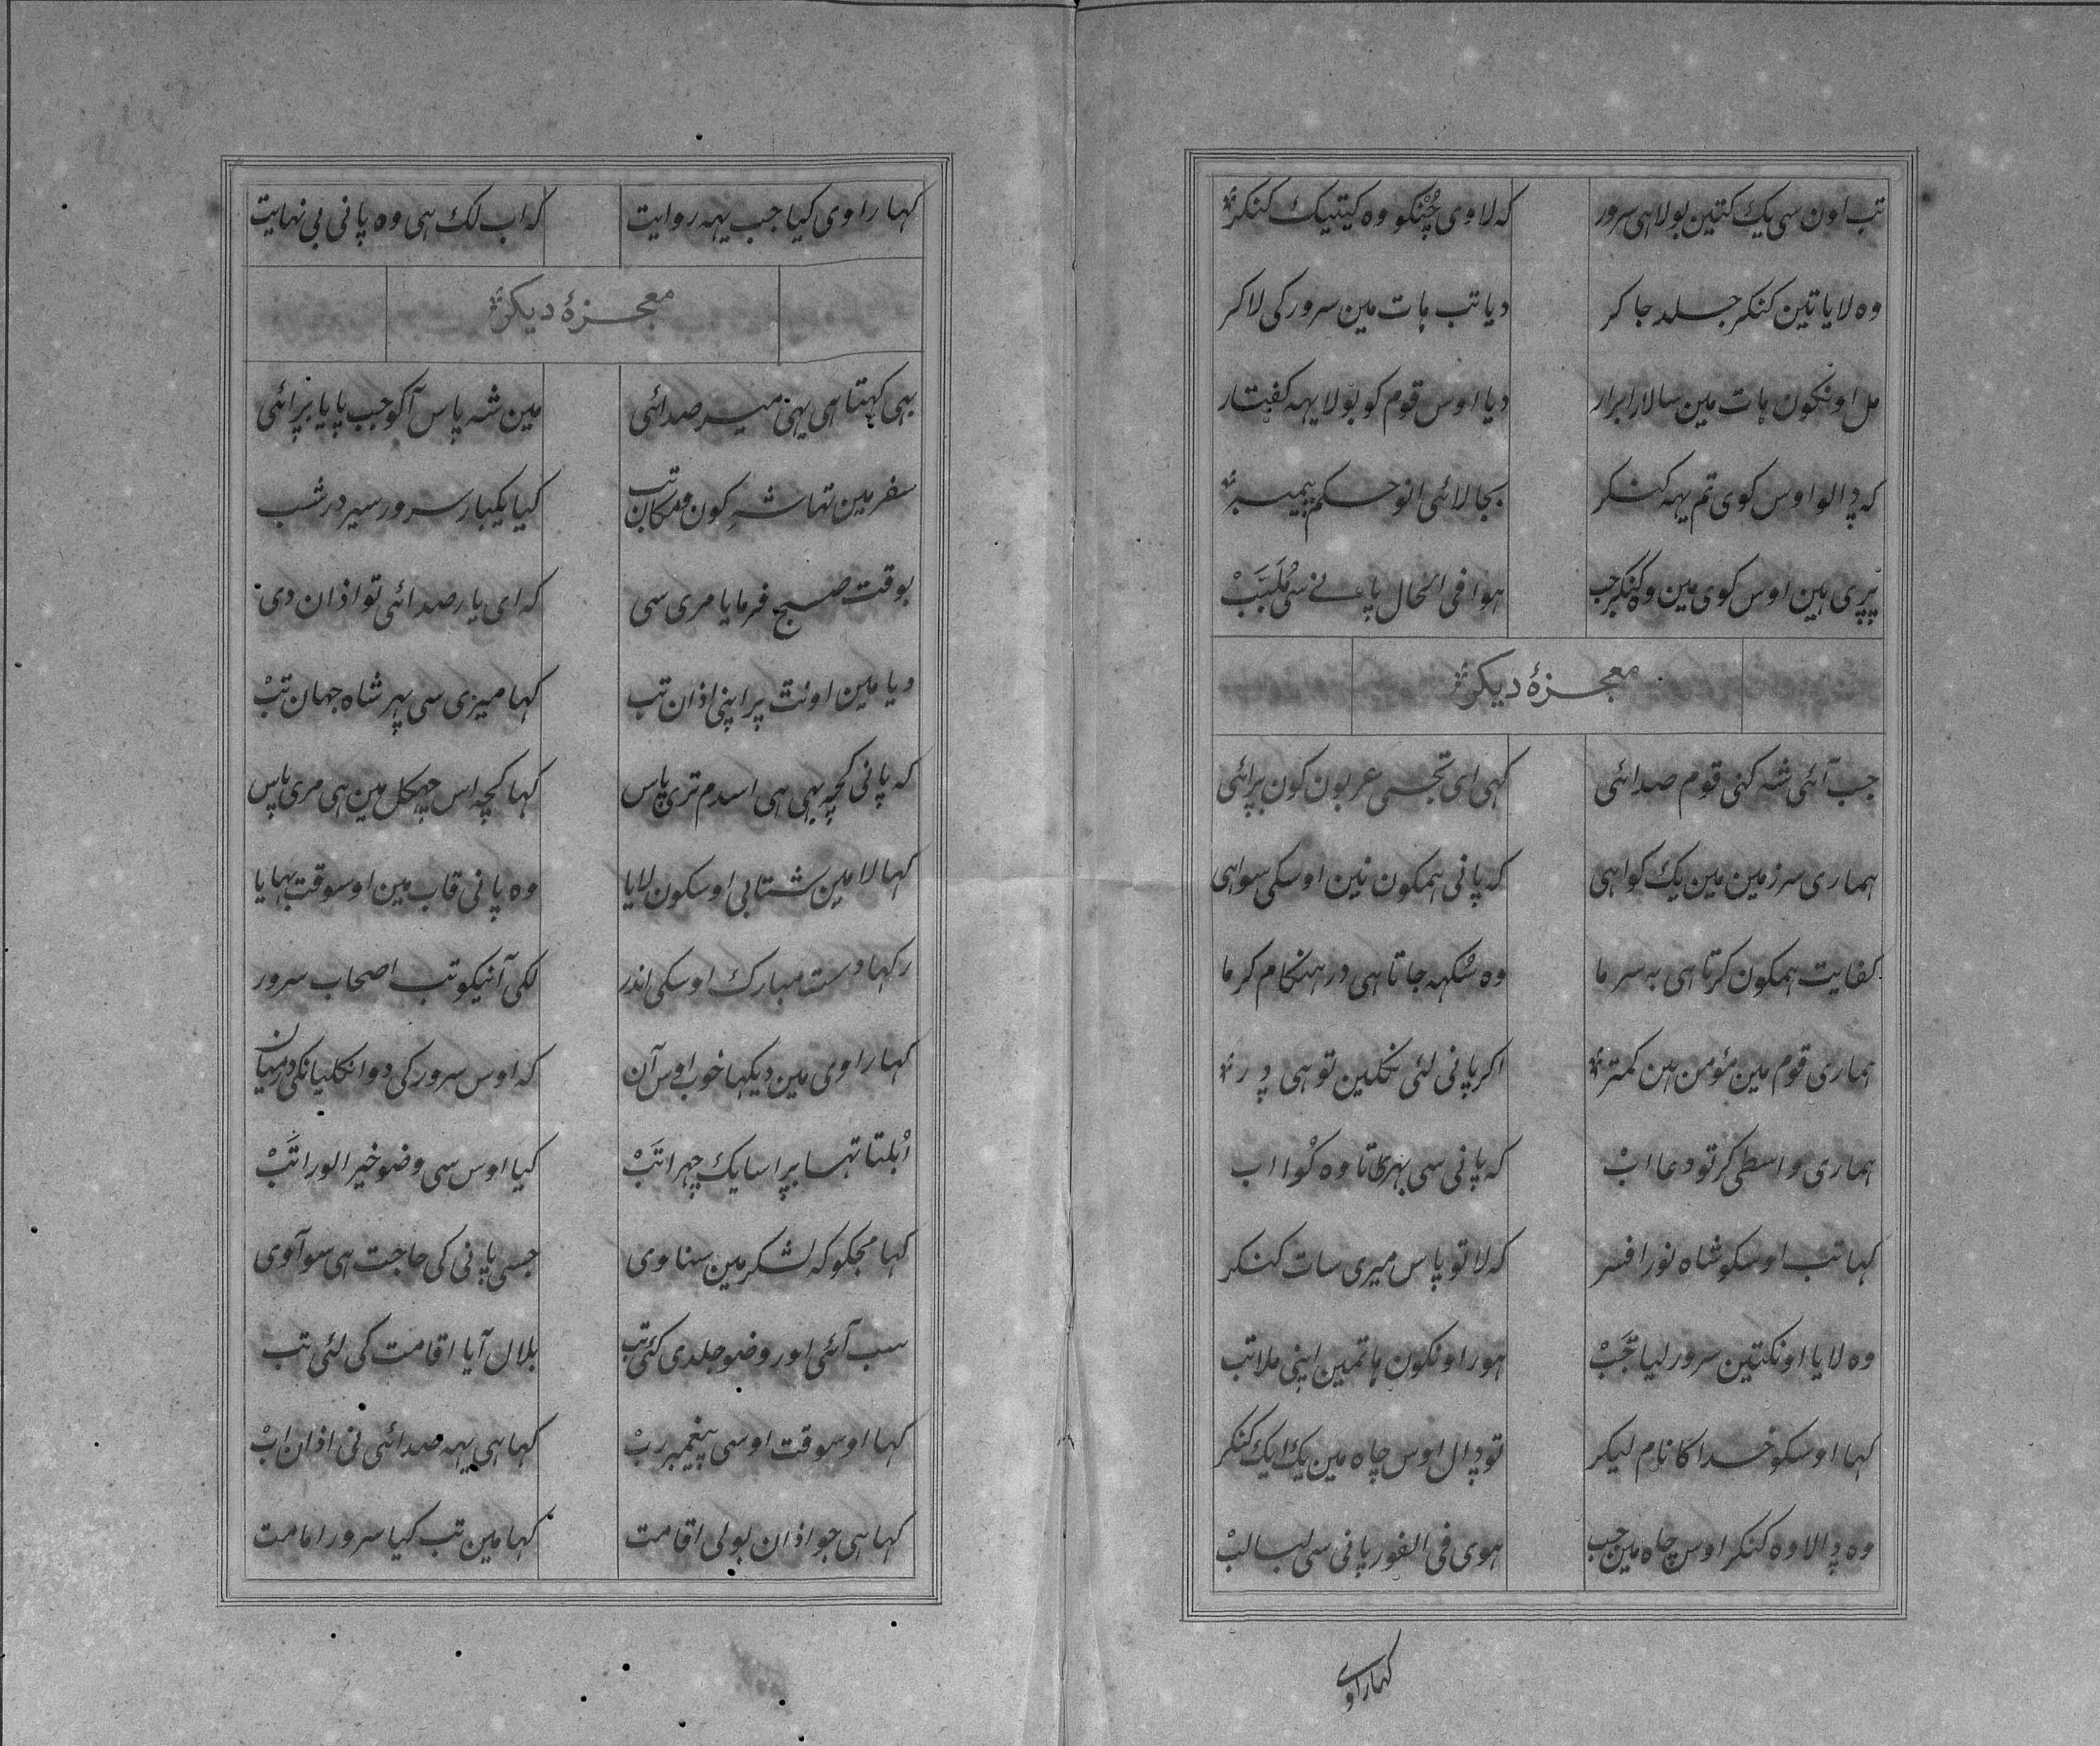 تب اون سی یک کتین بولا هی سرور که لاوی چُنکو وه کیتیک کنکر
وه لایا تین کنکر جلد جا کر دیا تب هات مین سرور کی لا کر
مل اونکون هات مین سالار ابرار دیا اوس قوم کو بولا یهه کفتار
که دالو اوس کوی تم یهه کنکر بجا لائی انو حکم پیمبر
پری هین اوس کوی مین وه کنکر جب هوا فی الحال پانی سی مُلَبَّبْ
معجزهٔ دیکر
جب آئی شه کنی قوم صدائی کهی ای تجسی عربون کون برائی
هماری سرزمین مین یک کوا هی که پانی همکون نین اوسکی سوا هی
کفایت همکون کرتا هی به سرما وه سُکهه جاتا هی در هنکام کرما
هماری قوم مین مؤمن هین کمتر اکر پانی لئی نکلین تو هی در
هماری واسطی کر تو دعا ابْ که پانی سی بهر اتا وه کُوا اب
کها تب اوسکو شاه نور افسر که لا تو پاس میری سات کنکر
وه لایا اونکتین سرور لیا جَبْ هور اونکون هاتمین اپنی ملا تب
کها اوسکو خدا کا نام لیکر تو دال اوس چاه مین یک ایک کنکر
وه دالا وه کنکر اوس چاه مین جب هوی فی الفور پانی سی لبالبْ
کها راوی
کها راوی کیا جب یهه روایت که اب لک هی وه پانی بی نهایت
معجزهٔ دیکر
بهی کهتا هی یهی میر صدائی مین شه پاس آکو جب پایا برائی
سفر مین تها شهِ کون و مکان تب کیا یکبار سرور سیر در شب
بوقت صبح فرمایا مری سی که ای یار صدائی تو اذان دی
دیا مین اونت پر اپنی اذان تب کها میری سی پهر شاه جهان تبْ
که پانی کچهه بهی هی اسدم تری پاس کها کچهه اس چهکل مین هی مری پاس
کها لا مین شتابی اوسکون لایا وه پانی قاب مین اوسوقت بهایا
رکها دست مبارک اوسکی اندر لکی آنیکو تب اصحاب سرور
کها راوی مین دیکها خوب اوس آن که اوس سرور کی دو انکلیانکی درمیان
اُبلتا تها برا سا یک چهرا تَبْ کیا اوس سی وضو خیر الورا تَبْ
کها مجکو که لشکر مین سناوی جسی پانی کی حاجت هی سو آوی
سب آئی اور وضو جلدی کئی تب بلال آیا اقامت کی لئی تب
کها اوسوقت اوسی پیغمبر ربْ کها هی یهه صدائی نی اذان ابْ
کها هی جو اذان بولی اقامت کها مین تب کیا سرور امامت